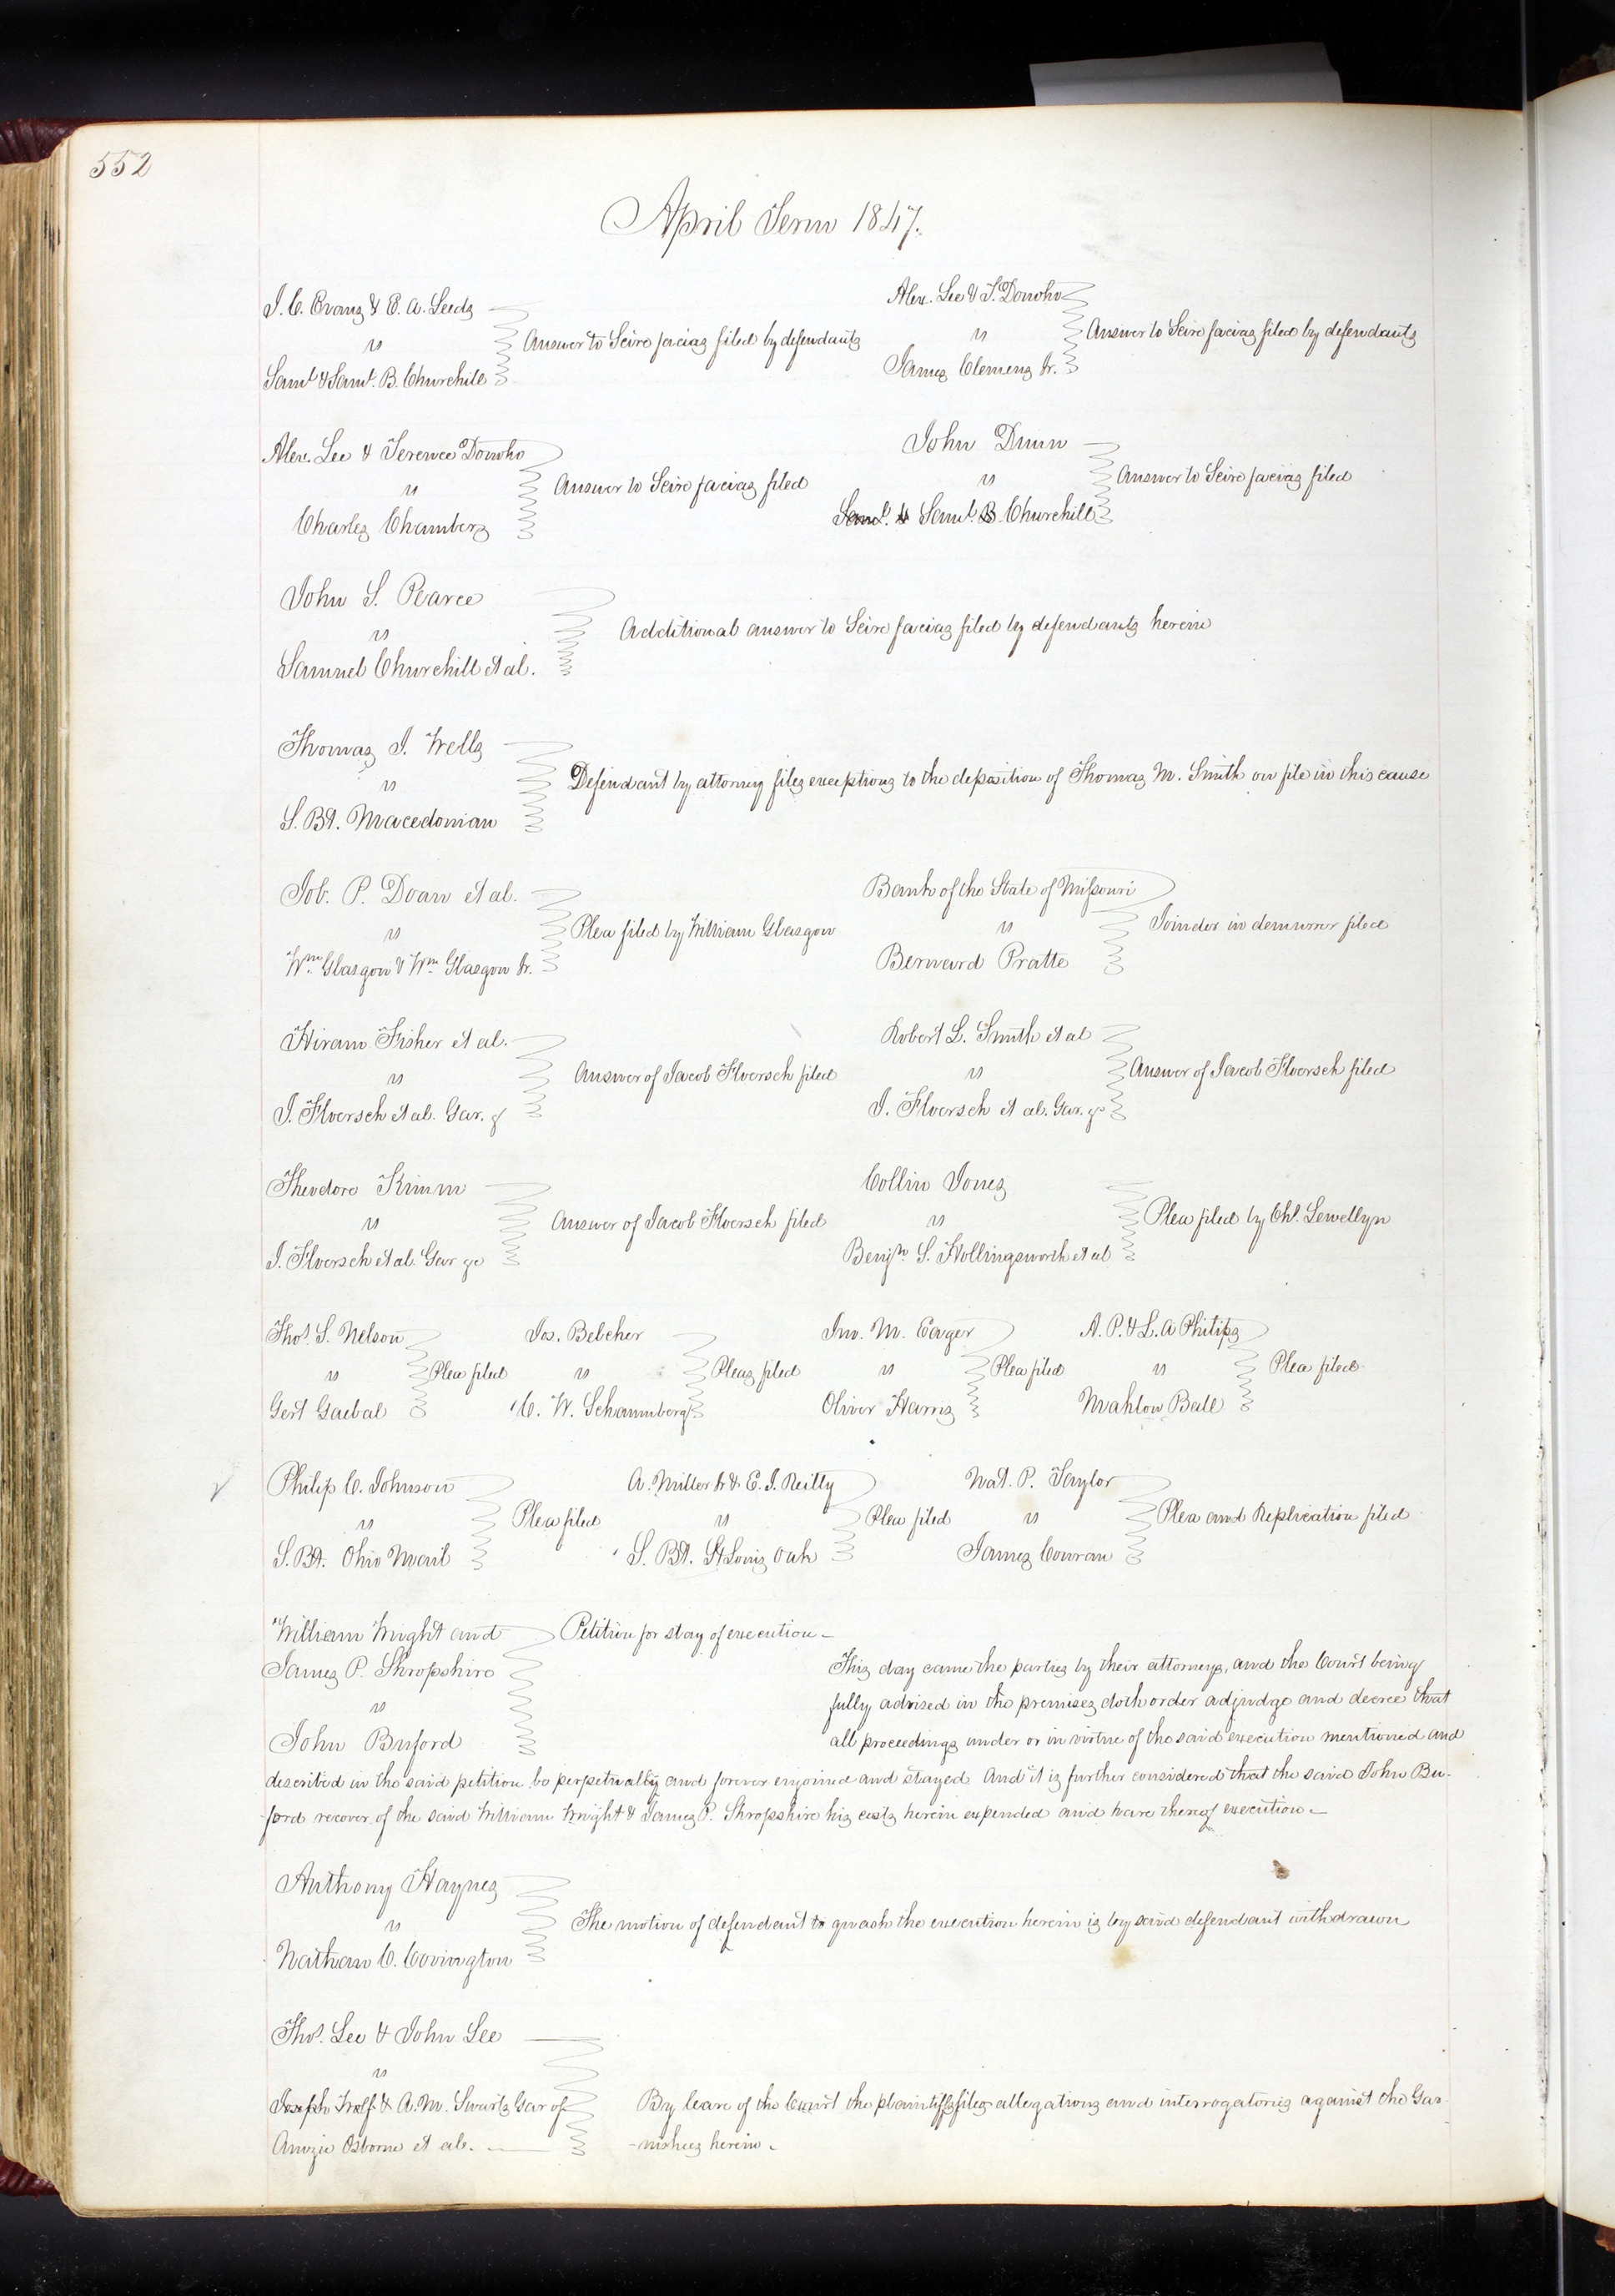 552
April Term 1847.
J. C. Evans & E. A. Leeds
vs
Saml & Saml. B. Churchill
Answer to Scire facias filed by defendants
Alex. Lee & T. Donoho
vs
James Clemens Jr.
Answer to Scire facias filed by defendants
Alex. Lee & Terence Donoho
vs
Charles Chambers
Answer to Scire facias filed
John Dunn
vs
Saml. & Saml. B. Churchill
Answer to Scire facias filed
John S. Pearce
vs
Samuel Churchill et al.
Additional answer to Scire facias filed by defendants herein
Thomas J. Wells
vs
S. Bt. Macedonian
Defendant by attorney files exceptions to the deposition of Thomas M. Smith on file in this cause
Job. P. Doan et al.
vs
Wm. Glasgow & Wm. Glasgow Jr.
Plea filed by William Glasgow
Bank of the State of Missouri
vs
Bernard Pratte
Joinder in demurrer filed
Hiram Fisher et al.
vs
J. Floersch et al. Gar. &
Answer of Jacob Floersch filed
Robert L. Smith et al
vs
J. Floersch et al. Gar. &c
Answer of Jacob Floersch filed
Theodore Krimm
vs
J. Floersch et al. Gar &c
Answer of Jacob Floersch filed
Collin Jones
vs
Benjn. S. Hollingsworth et al
Plea filed by Chs. Lewellyn
Thos. S. Nelson
vs
Gert Gaebal
Plea filed
Jos. Belcher
vs
C. W. Schaumberg
Pleas filed
Jno. M. Eager
vs
Oliver Harris
Plea filed
A. P. & L. A Philips
vs
Mahlon Ball
Plea filed
Philip C. Johnson
vs
S. Bt. Ohio Mail
Plea filed
A. Miller Jr & E. J. Reilly
vs
S. Bt. St Louis Oak
Plea filed
Nat. P. Taylor
vs
James Conran
Plea and Replication filed
William Wright and
James P. Shropshire
vs
John Buford
Petition for stay of execution
This day came the parties by their attorneys, and the Court being
fully advised in the premises doth order adjudge and decree that
all proceedings under or in virtue of the said execution mentioned and
described in the said petition be perpetually and forever enjoined and stayed. And it is further considered that the said John Bu-
ford recover of the said William Wright & James P. Shropshire his costs herein expended and have thereof execution
Anthony Haynes
vs
Nathan C. Covington
The motion of defendant to quash the execution herein is by said defendant withdrawn
Thos. Lee & John Lee
vs
Joseph Wolf & A. M. Swartz Gar of
Osborne et al.
By leave of the Court the plaintiffs files allegations and interrogatories against the Gar-
-nishees herein